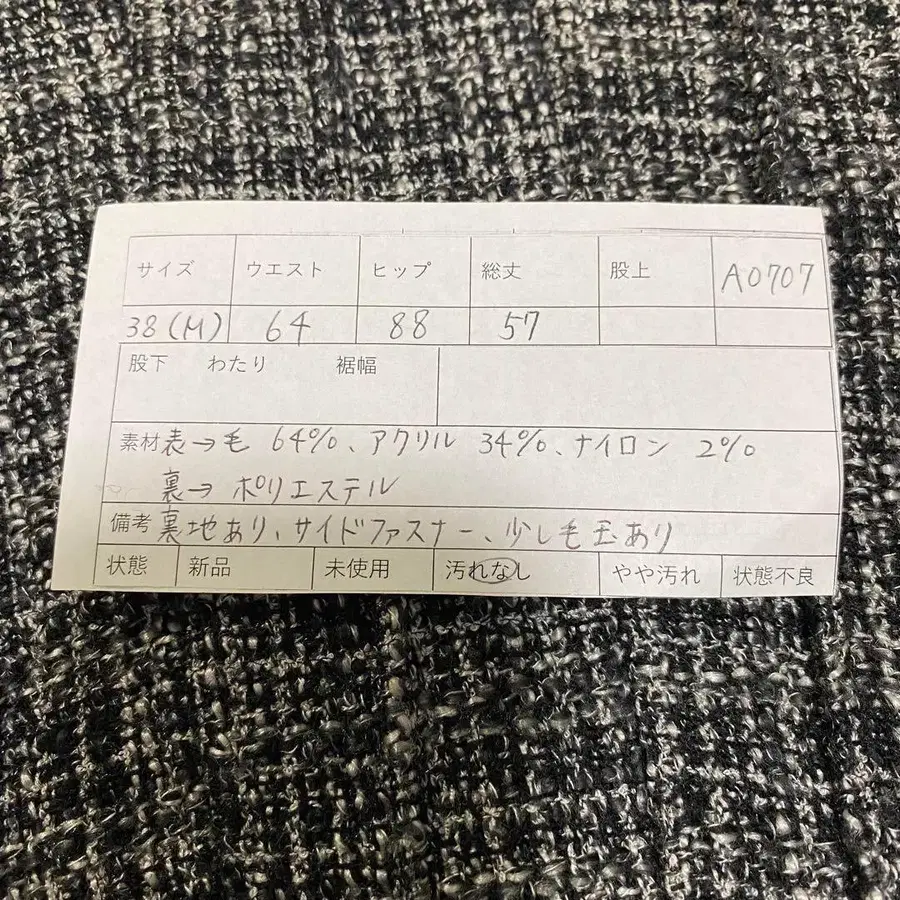 サイズ ウエスト ヒップ 総丈 股上 A0707
38(M) 64 88 57
股下 わたり 裾幅
素材 表→毛 64%、アクリル 34%、ナイロン 2%
裏→ポリエステル
備考 裏地あり、サイドファスナー、少し毛玉あり
状態 新品 未使用 汚れなし やや汚れ 状態不良